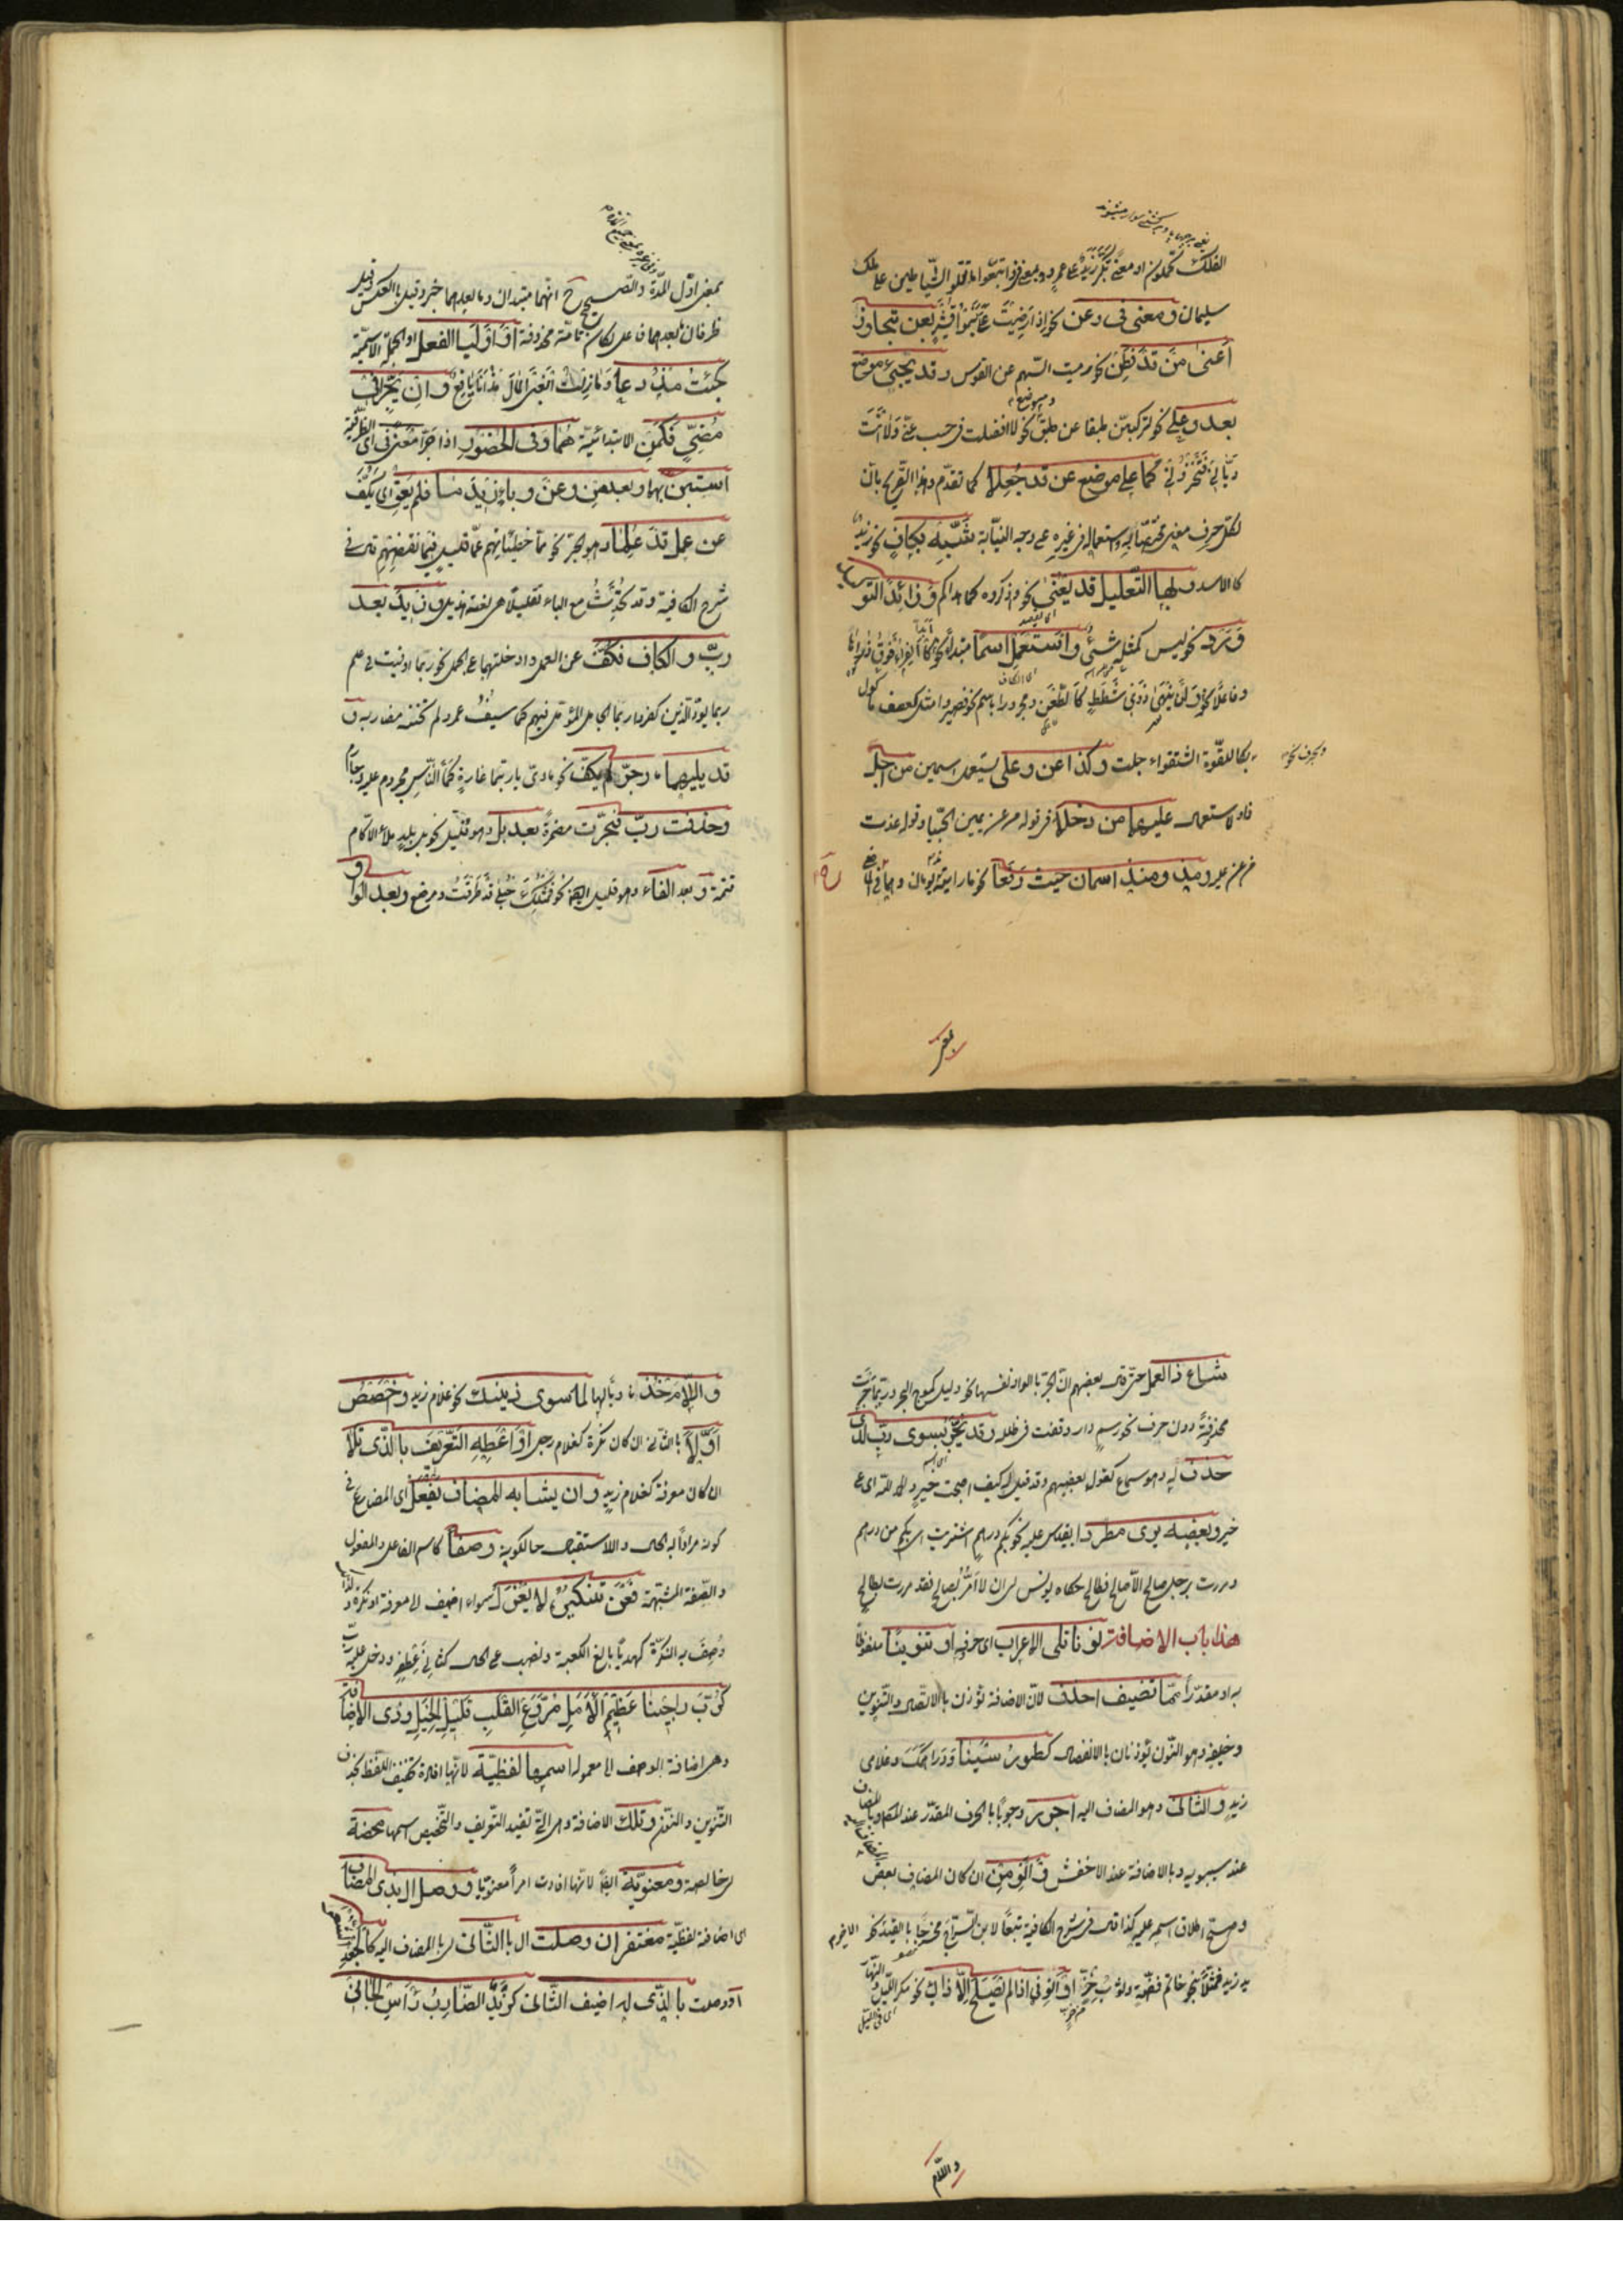 الفلك تحملون او معنى تكبر زيد على عمرو و معنى في و اتبعوا ما تتلوا الشياطين على ملك
سليمان و معنى في و عن نحو اذا رضيت عليّ بنو قشير بعن تجاوزا
أعنى من قد فطن نحو رميت السهم عن القوس و قد يجيء موضع
بعد و على نحو لتركبن طبقا عن طبق نحو لا افضلت في حسب عني ولا أنت
ديّاني فتخزوني كما على موضع عن قد جعلا كما تقدم و هذا التصريح بان
لكل حرف معنى مختصا به و استعماله في غيره على وجه النيابة شبّه بكاف نحو زيد
كالاسد و بها التعليل قد يعنى نحو و اذكروه كما هداكم و زائدا لتوكيد
ورد نحو ليس كمثله شيء و استعمل اسما مبتدأ نحو كالفراء فوق ذراها
و فاعلا نحو و لن ينهى ذوي شطط كالطعن و مجرورا باسم نحو فصيروا مثل كعصف مأكول
و بحرف نحو
بكاللقوة الشغواء جلت و كذا عن و على يستعملا اسمين من اجل ذا
عليهما من دخلا في قوله من عن يمين الحبيا و قوله غدت
من عليه و مذ و منذ اسمان حيث رفعا نحو ما رايته مذ يومان و هما في الماضي
بمعنى اول المدة و الصحيح انهما مبتدان و ما بعدهما خبر و قيل بالعكس و قيل
ظرفان و ما بعدهما فاعل لكان تامة محذوفة أو أوليا الفعل او الجملة الاسمية
كجئت مذ دعا و ما زلت ابغى المال مذ انا يافع و ان يجرّا في
مضيّ فكمن الابتدائية هما و في الحضور اذا جرّا معنى في اى الظرفية
استبن بهما و بعد من و عن و باء زيد ما فلم يعق اى يكف
عن عمل قد علما و هو الجر نحو مما خطيئاتهم عما قليل فبما نقضهم قال في
شرح الكافية و قد تحدث مع الباء تقليلا هى لغة هذيل و زيد بعد
ربّ و الكاف فكف عن العمل و ادخلتهما على الجمل نحو ربما اوفيت في علم
ربما يود الذين كفروا ربما الجامل المؤبل فيهم كما سيف عمرو لم تخنه مضاربه و
قد يليهما ما و جرّ لم يكف نحو ماوي يا ربتما غارة كما الناس مجروم عليه و جارم
و حذفت ربّ فجرّت مضمرة بعد بل و هو قليل نحو بل بلد ملء الاكام
قتمه و بعد الفاء و هو قليل ايضا نحو فمثلك حبلى قد طرقت و مرضع و بعد الواو
شاع ذا العمل حتى قال بعضهم ان الجر بالواو نفسها نحو و ليل كموج البحر و ربما جرت
محذوفة دون حرف نحو رسم دار وقفت في طلله و قد يجرّ بسوى ربّ لدى
حذف له و هو سماع كقول بعضهم و قد قيل له كيف اصبحت خير و الحمد لله اى على
خير و بعضه يرى مطردا يقاس عليه نحو بكم درهم اشتريت اى بكم من درهم
و مررت برجل صالح الا صالح فطالح حكاه يونس اى ان لا امرّ بصالح فقد مررت بطالح
هذا باب الاضافة نونا تلى الاعراب اى حرفه او تنوينا ملفوظا
به او مقدرا مما تضيف احذف لان الاضافة تؤذن بالاتصال و التنوين
و خليفه و هو النون يؤذنان بالانفصال كطور سينا و دراهمك و غلامي
زيد و الثانى و هو المضاف اليه اجرر وجوبا بالحرف المقدر عند المص و بالمضاف
عند سيبويه و بالاضافة عند الاخفش و انو من ان كان المضاف بعض
و صح اطلاق اسمه عليه كذا قال في شرح الكافية تبعا لابن السراج مخرجا بالقيد الاخير نحو
يد زيد فمثلا بنحو خاتم فضة و ثوب خزّ او انو في اذا لم يصلح الا ذاك نحو مكر الليل و النهار
و اللام
و اللام خذ ناويا لها لما سوى ذينك نحو غلام زيد و اخصص
اوّلا بالثانى ان كان نكرة كغلام رجل او اعطه التعريف بالذى تلا
ان كان معرفة كغلام زيد و ان يشابه المضاف يفعل اى المضارع في
كونه مرادا به الحال و الاستقبال حالكونه وصفا كاسم الفاعل و المفعول
و الصفة المشبهة فعن تنكيره لا يعزل سواء اضيف الى معرفة او نكرة و لذا
وصف به النكرة كهديا بالغ الكعبة و نصب على الحال كثاني عطفه و دخل عليه رب
كربّ راجينا عظيم الامل مروّع القلب قليل الحيل و ذى الاضافة
و هى اضافة الوصف الى معموله اسمها لفظية لانها افادت تخفيف اللفظ بحذف
التنوين و النون و تلك الاضافة و هى التى تفيد التعريف و التخصيص اسمها محضة
اى خالصة و معنوية ايضا لانها افادت امرا معنويا و وصل ال بذى المضاف
اى اضافة لفظية مغتفر ان وصلت ال بالثانى اى بالمضاف اليه كالجعد الشعر
او وصلت بالذى له اضيف الثانى كزيد الضارب راس الجانى